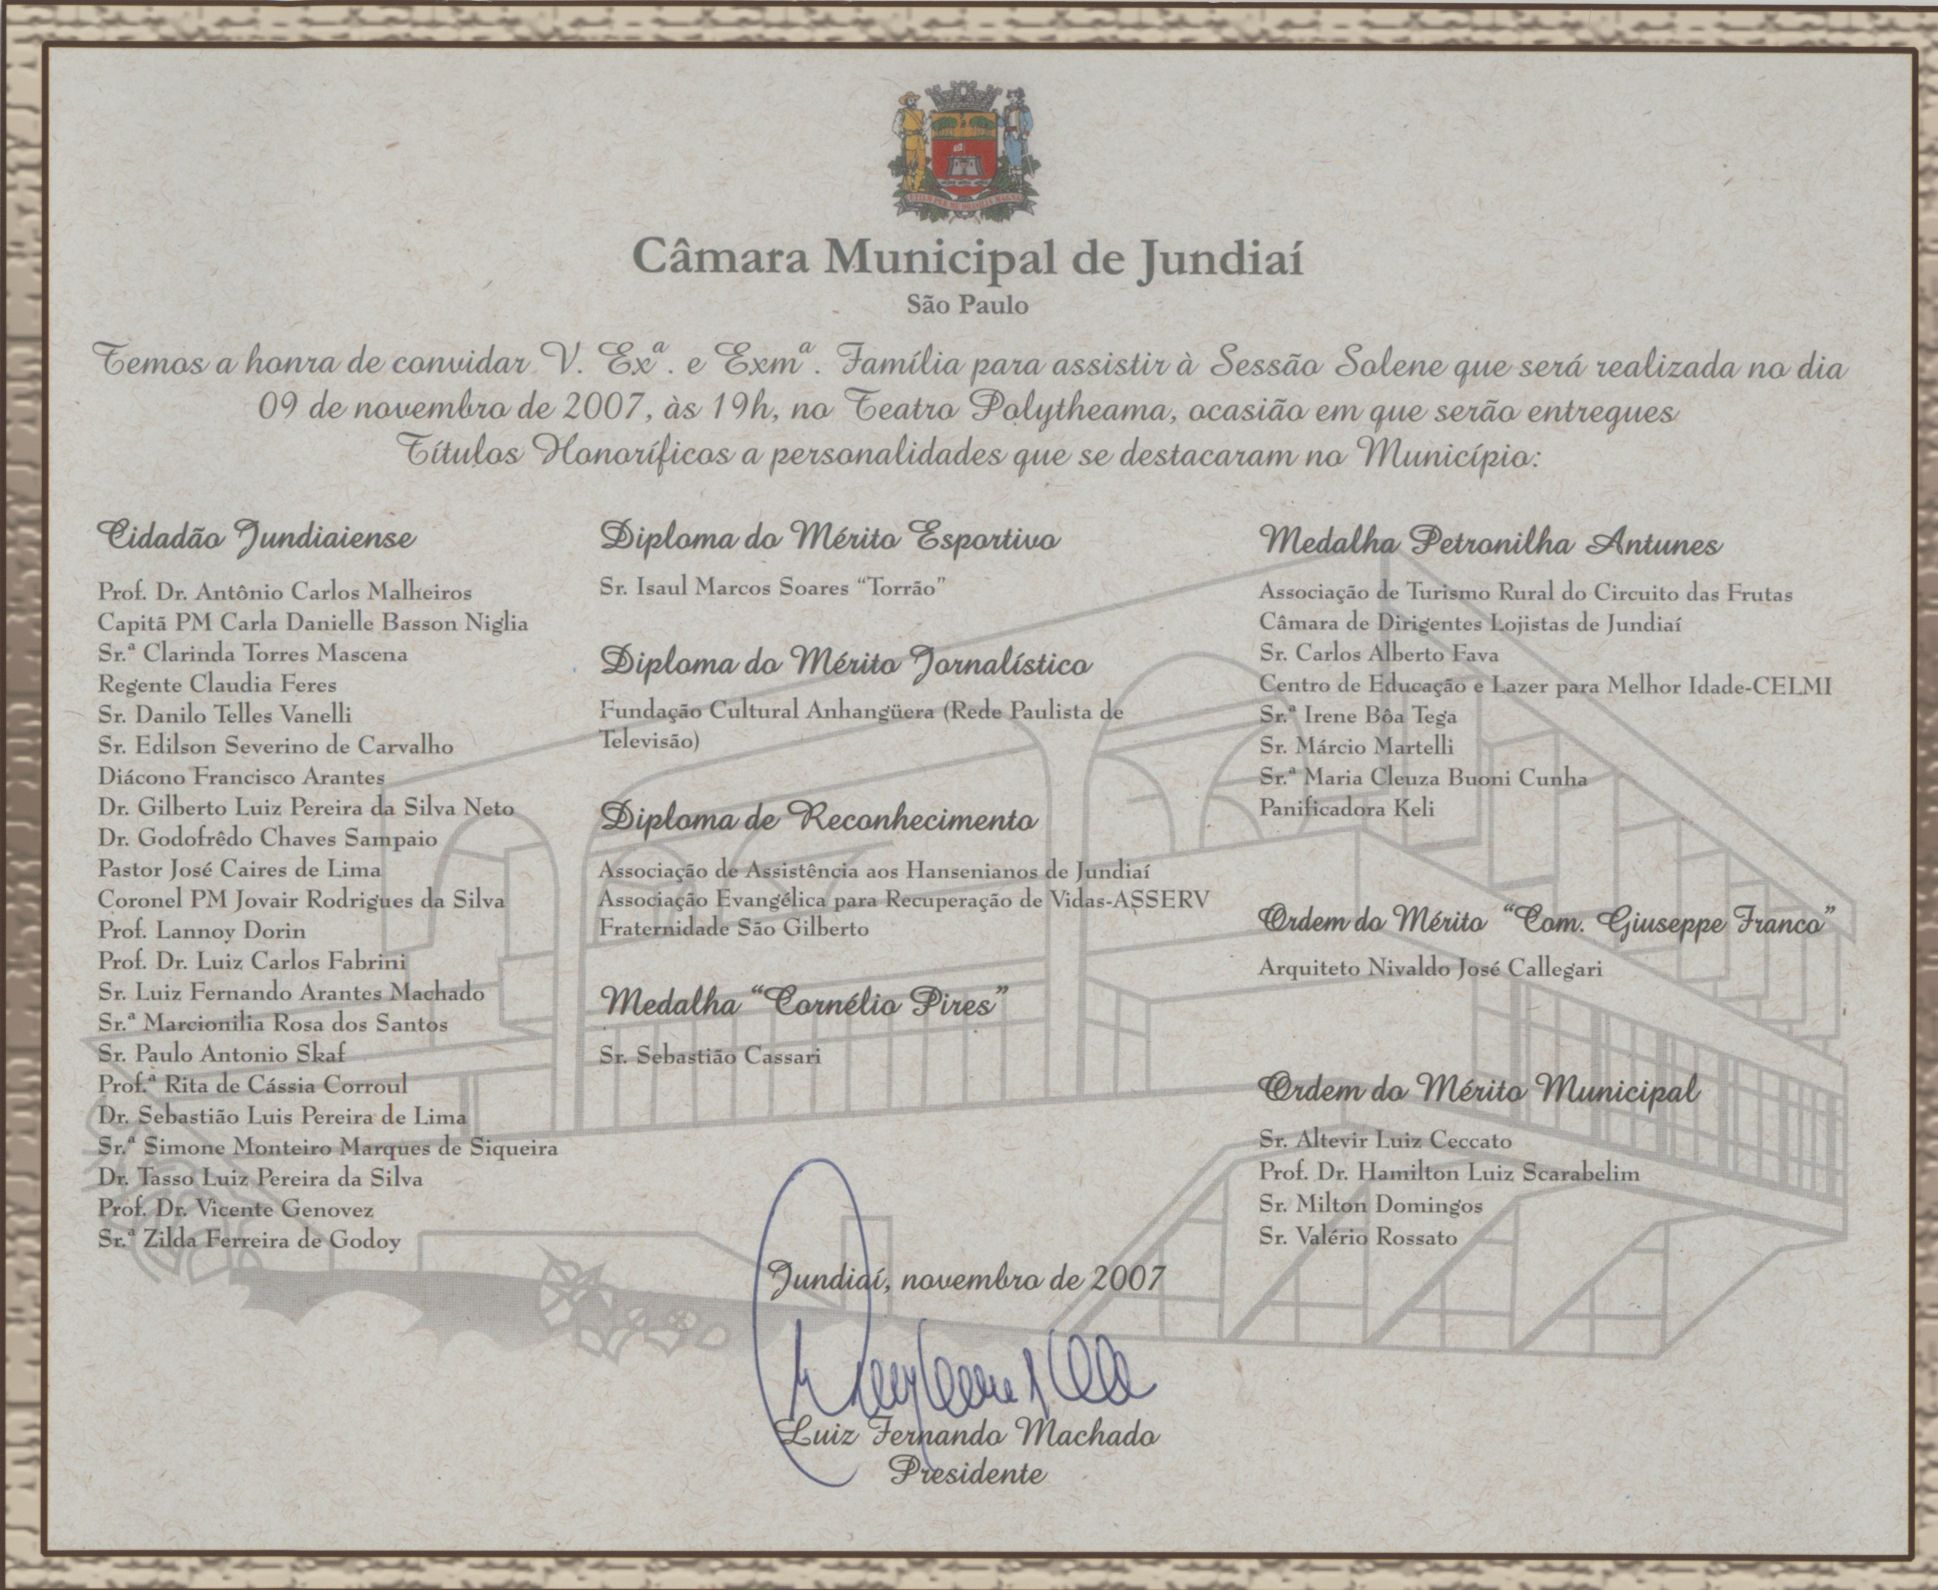 Câmara Municipal de Jundiaí
São Paulo
Temos a honra de convidar V. Exª. e Exmª. Família para assistir à Sessão Solene que será realizada no dia
09 de novembro de 2007, às 19h, no Teatro Polytheama, ocasião em que serão entregues
Títulos Honoríficos a personalidades que se destacaram no Município:
Cidadão Jundiaiense
Prof. Dr. Antônio Carlos Malheiros
Capitã PM Carla Danielle Basson Niglia
Sr.ª Clarinda Torres Mascena
Regente Claudia Feres
Sr. Danilo Telles Vanelli
Sr. Edilson Severino de Carvalho
Diácono Francisco Arantes
Dr. Gilberto Luiz Pereira da Silva Neto
Dr. Godofrêdo Chaves Sampaio
Pastor José Caires de Lima
Coronel PM Jovair Rodrigues da Silva
Prof. Lannoy Dorin
Prof. Dr. Luiz Carlos Fabrini
Sr. Luiz Fernando Arantes Machado
Sr.ª Marcionilia Rosa dos Santos
Sr. Paulo Antonio Skaf
Prof.ª Rita de Cássia Corroul
Dr. Sebastião Luis Pereira de Lima
Sr.ª Simone Monteiro Marques de Siqueira
Dr. Tasso Luiz Pereira da Silva
Prof. Dr. Vicente Genovez
Sr.ª Zilda Ferreira de Godoy
Diploma do Mérito Esportivo
Sr. Isaul Marcos Soares “Torrão”
Diploma do Mérito Jornalístico
Fundação Cultural Anhangüera (Rede Paulista de
Televisão)
Diploma de Reconhecimento
Associação de Assistência aos Hansenianos de Jundiaí
Associação Evangélica para Recuperação de Vidas-ASSERV
Fraternidade São Gilberto
Medalha “Cornélio Pires”
Sr. Sebastião Cassari
Medalha Petronilha Antunes
Associação de Turismo Rural do Circuito das Frutas
Câmara de Dirigentes Lojistas de Jundiaí
Sr. Carlos Alberto Fava
Centro de Educação e Lazer para Melhor Idade-CELMI
Sr.ª Irene Bôa Tega
Sr. Márcio Martelli
Sr.ª Maria Cleuza Buoni Cunha
Panificadora Keli
Ordem do Mérito “Com. Giuseppe Franco”
Arquiteto Nivaldo José Callegari
Ordem do Mérito Municipal
Sr. Altevir Luiz Ceccato
Prof. Dr. Hamilton Luiz Scarabelim
Sr. Milton Domingos
Sr. Valério Rossato
Jundiaí, novembro de 2007
Luiz Fernando Machado
Presidente